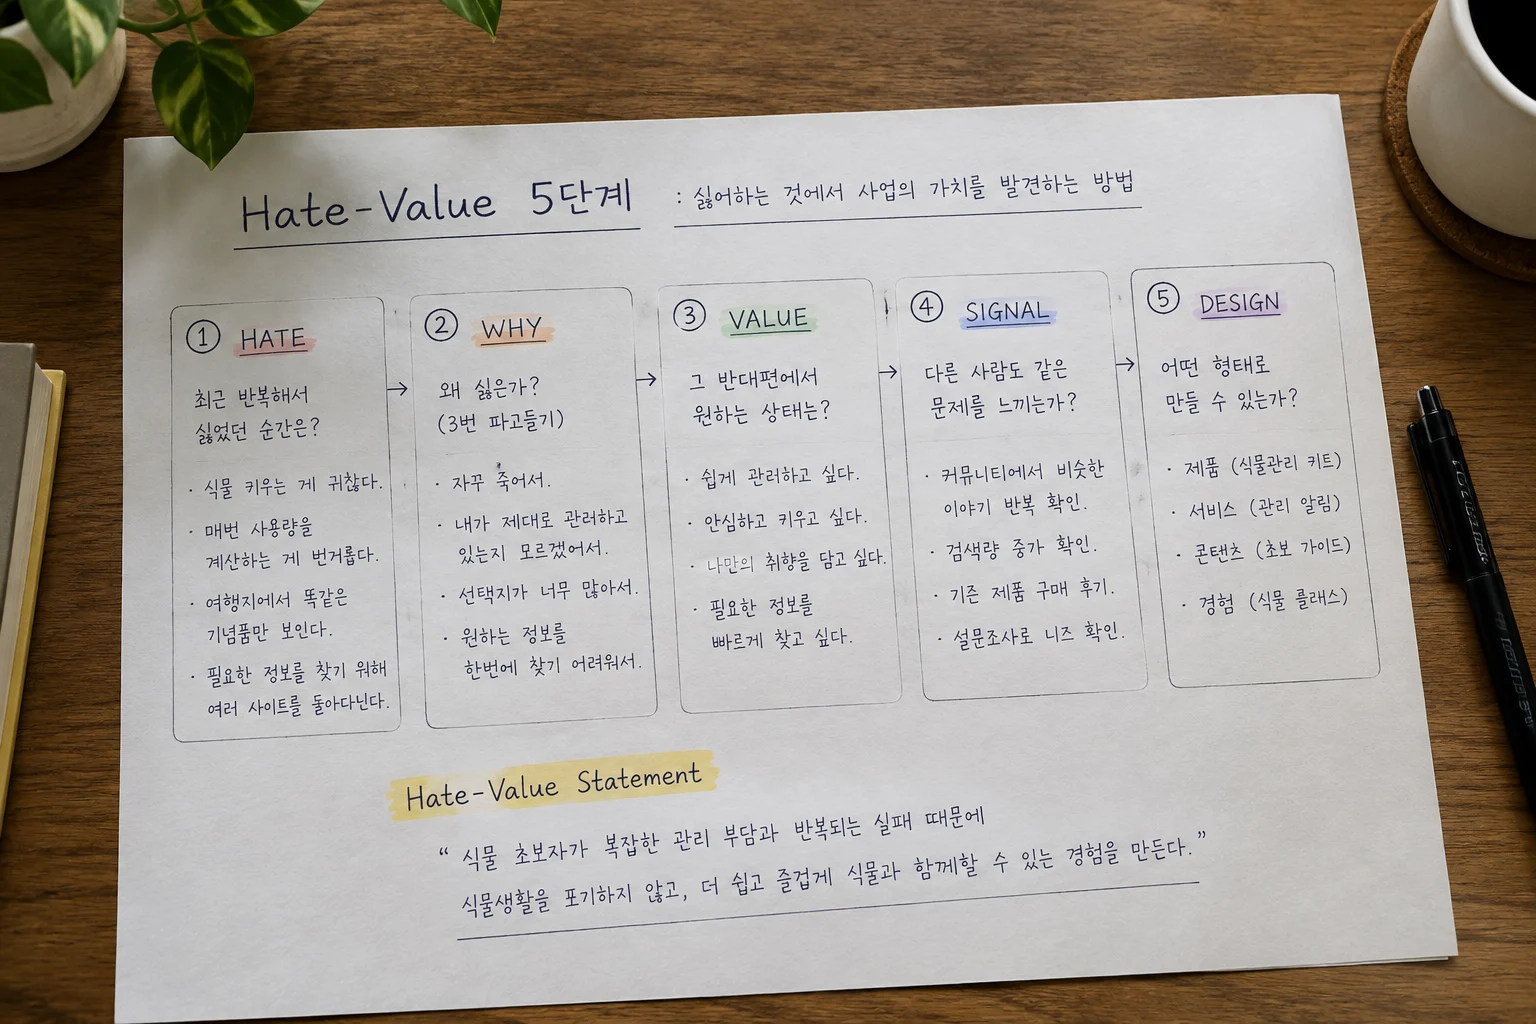 Hate-Value 5단계 : 싫어하는 것에서 사업의 가치를 발견하는 방법
① HATE
최근 반복해서
싫었던 순간은?
· 식물 키우는 게 귀찮다.
· 매번 사용량을
계산하는 게 번거롭다.
· 여행지에서 똑같은
기념품만 보인다.
· 필요한 정보를 찾기 위해
여러 사이트를 돌아다닌다.
→
② WHY
왜 싫은가?
(3번 파고들기)
· 자꾸 죽어서.
· 내가 제대로 관리하고
있는지 모르겠어서.
· 선택지가 너무 많아서.
· 원하는 정보를
한번에 찾기 어려워서.
→
③ VALUE
그 반대편에서
원하는 상태는?
· 쉽게 관리하고 싶다.
· 안심하고 키우고 싶다.
· 나만의 취향을 담고 싶다.
· 필요한 정보를
빠르게 찾고 싶다.
→
④ SIGNAL
다른 사람도 같은
문제를 느끼는가?
· 커뮤니티에서 비슷한
이야기 반복 확인.
· 검색량 증가 확인.
· 기존 제품 구매 후기.
· 설문조사로 니즈 확인.
→
⑤ DESIGN
어떤 형태로
만들 수 있는가?
· 제품 (식물관리 키트)
· 서비스 (관리 알림)
· 콘텐츠 (초보 가이드)
· 경험 (식물 클래스)
Hate-Value Statement
“ 식물 초보자가 복잡한 관리 부담과 반복되는 실패 때문에
식물생활을 포기하지 않고, 더 쉽고 즐겁게 식물과 함께할 수 있는 경험을 만든다. ”